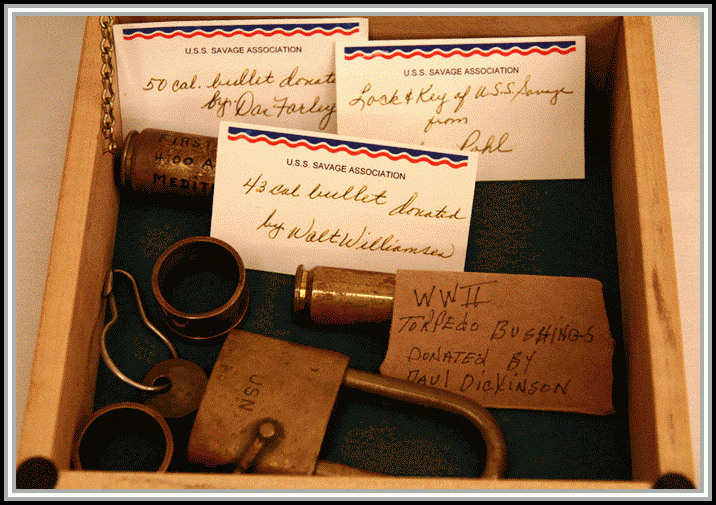 U.S.S. SAVAGE ASSOCIATION
50 cal. bullet donated
by Dar Farley
U.S.S. SAVAGE ASSOCIATION
Lock & Key of U.S.S. Savage
from
Pohl
FIRST
4:00 A
MEDIT
U.S.S. SAVAGE ASSOCIATION
43 cal bullet donated
by Walt Williamsen
WWII
TORPEDO BUSHINGS
DONATED BY
PAUL DICKINSON
USN